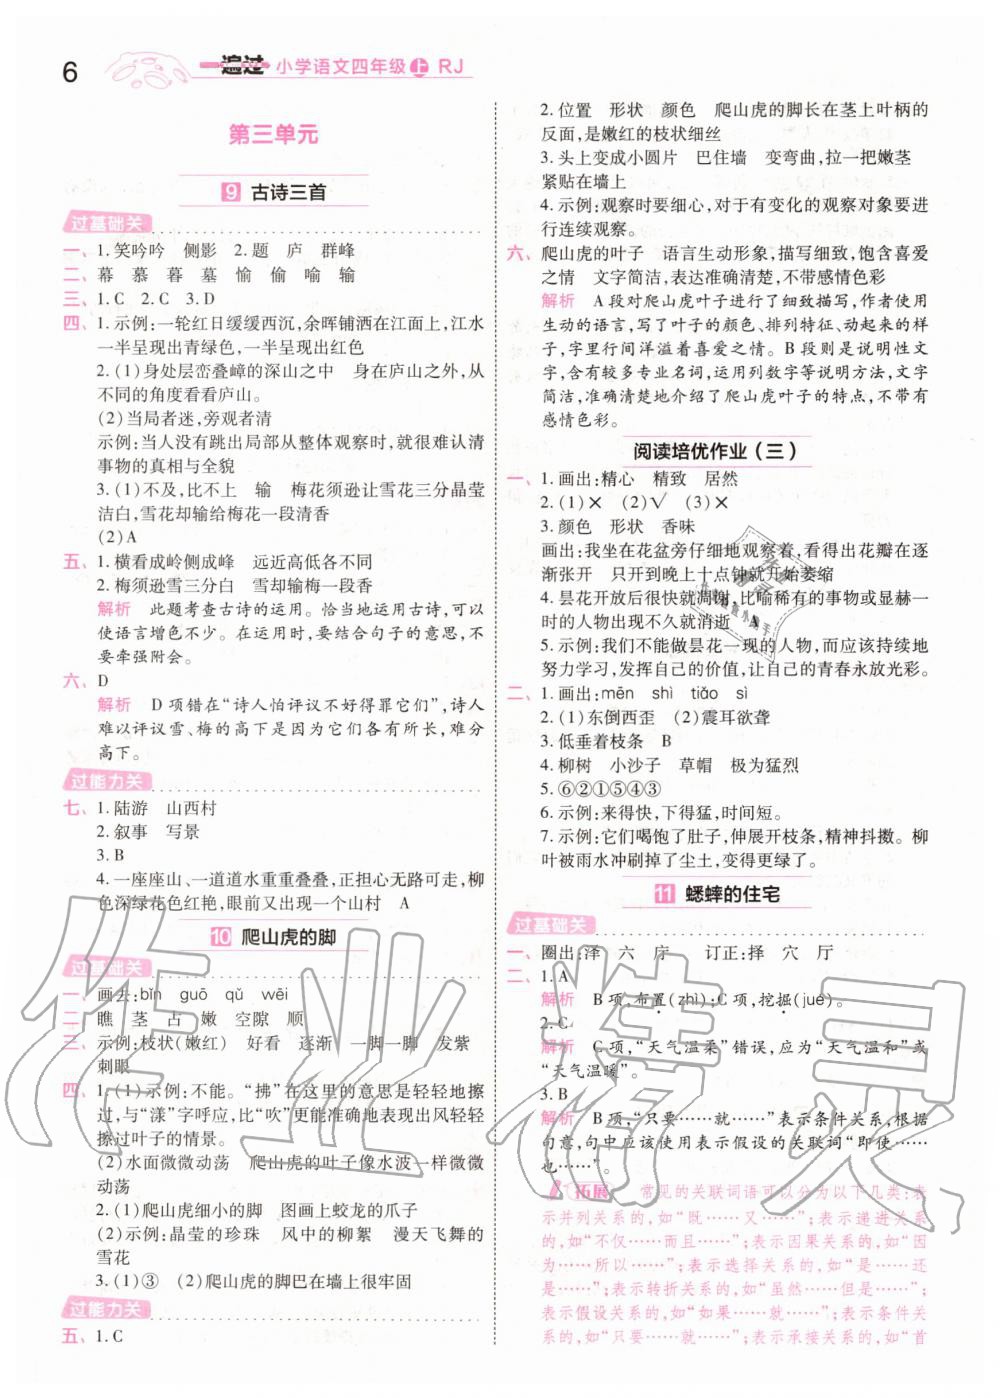 6
一遍过 小学语文四年级上 RJ
第三单元
9 古诗三首
过基础关
一、1.笑吟吟 侧影 2.题 庐 群峰
二、幕 慕 暮 墓 愉 偷 喻 输
三、1.C 2.C 3.D
四、1.示例:一轮红日缓缓西沉,余晖铺洒在江面上,江水
一半呈现出青绿色,一半呈现出红色
2.(1)身处层峦叠嶂的深山之中 身在庐山之外,从
不同的角度看看庐山。
(2)当局者迷,旁观者清
示例:当人没有跳出局部从整体观察时,就很难认清
事物的真相与全貌
3.(1)不及,比不上 输 梅花须逊让雪花三分晶莹
洁白,雪花却输给梅花一段清香
(2)A
五、1.横看成岭侧成峰 远近高低各不同
2.梅须逊雪三分白 雪却输梅一段香
解析 此题考查古诗的运用。恰当地运用古诗,可以
使语言增色不少。在运用时,要结合句子的意思,不
要牵强附会。
六、D
解析 D项错在“诗人怕评议不好得罪它们”,诗人
难以评议雪、梅的高下是因为它们各有所长,难分
高下。
过能力关
七、1.陆游 山西村
2.叙事 写景
3.B
4.一座座山、一道道水重重叠叠,正担心无路可走,柳
色深绿花色红艳,眼前又出现一个山村 A
10 爬山虎的脚
过基础关
一、画去:bǐn guō qǔ wēi
二、瞧 茎 占 嫩 空隙 顺
三、示例:枝状(嫩红) 好看 逐渐 一脚一脚 发紫
刺眼
四、1.(1)示例:不能。“拂”在这里的意思是轻轻地擦
过,与“漾”字呼应,比“吹”更能准确地表现出风轻轻
擦过叶子的情景。
(2)水面微微动荡 爬山虎的叶子像水波一样微微
动荡
2.(1)爬山虎细小的脚 图画上蛟龙的爪子
(2)示例:晶莹的珍珠 风中的柳絮 漫天飞舞的
雪花
3.(1)③ (2)爬山虎的脚巴在墙上很牢固
过能力关
五、1.C
2.位置 形状 颜色 爬山虎的脚长在茎上叶柄的
反面,是嫩红的枝状细丝
3.头上变成小圆片 巴住墙 变弯曲,拉一把嫩茎
紧贴在墙上
4.示例:观察时要细心,对于有变化的观察对象要进
行连续观察。
六、爬山虎的叶子 语言生动形象,描写细致,饱含喜爱
之情 文字简洁,表达准确清楚,不带感情色彩
解析 A段对爬山虎叶子进行了细致描写,作者使用
生动的语言,写了叶子的颜色、排列特征、动起来的样
子,字里行间洋溢着喜爱之情。B段则是说明性文
字,含有较多专业名词,运用列数字等说明方法,语言
简洁,准确清楚地介绍了爬山虎叶子的特点,不带有
感情色彩。
阅读培优作业(三)
一、1.画出:精心 精致 居然
2.(1)✕ (2)✓ (3)✕
3.颜色 形状 香味
画出:我坐在花盆旁仔细地观察着,看得出花瓣在逐
渐张开 只开到晚上十点钟就开始萎缩
4.昙花开放后很快就凋谢,比喻稀有的事物或显赫一
时的人物出现不久就消逝 A
5.示例:我们不能做昙花一现的人物,而应该持续地
努力学习,发挥自己的价值,让自己的青春永放光彩。
二、1.画出:mēn shì tiǎo sì
2.(1)东倒西歪 (2)震耳欲聋
3.低垂着枝条 B
4.柳树 小沙子 草帽 极为猛烈
5.⑥②①⑤④③
6.示例:来得快,下得猛,时间短。
7.示例:它们喝饱了肚子,伸展开枝条,精神抖擞。柳
叶被雨水冲刷掉了尘土,变得更绿了。
11 蟋蟀的住宅
过基础关
一、圈出:泽 六 序 订正:择 穴 厅
二、1.A
解析 B项,布置(zhì);C项,挖掘(jué)。
2.C
解析 C项,“天气温柔”错误,应为“天气温和”或
“天气温暖”。
3.B
解析 B项,“只要……就……”表示条件关系,根据
句意,句中应该使用表示假设的关联词“即使……
也……”。
拓展 常见的关联词语可以分为以下几类:表
示并列关系的,如“既……又……”;表示递进关系
的,如“不仅……而且……”;表示因果关系的,如“因
为……所以……”;表示选择关系的,如“是……还
是……”;表示转折关系的,如“虽然……但是……”;
表示假设关系的,如“如果……就……”;表示条件关
系的,如“只要……就……”;表示承接关系的,如“首
作业精灵